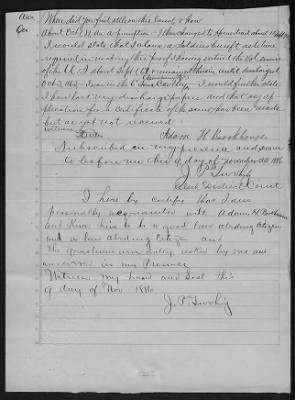 Ques When did you first settle on this land & how
Ans About Oct 1st as a preemption I then changed to Homestead about 1 Sept
I would state that I claim a Soldiers benefit as to time
required in making this proof having entered the Volunteers
of the U.S. about Sept remained therein until discharged
Oct was in the 6 Cavalry I would further state
I have lost my discharge papers and that my ap
plication for a certificate of the same has been made
but as yet not received
witness
Adam H Brookhouser
Subscribed in my presence and sworn
to before me this 9 day of November AD 1886
J. P.
Clerk District Court
I hereby certify that I am
personally acquainted with Adam H
and know him to be a good law abiding Citizen
and a law abiding Citizen and
the questions were asked by me and
answered in my Presence
Witness my hand and Seal this
9 day of Nov. 1886
J. P.